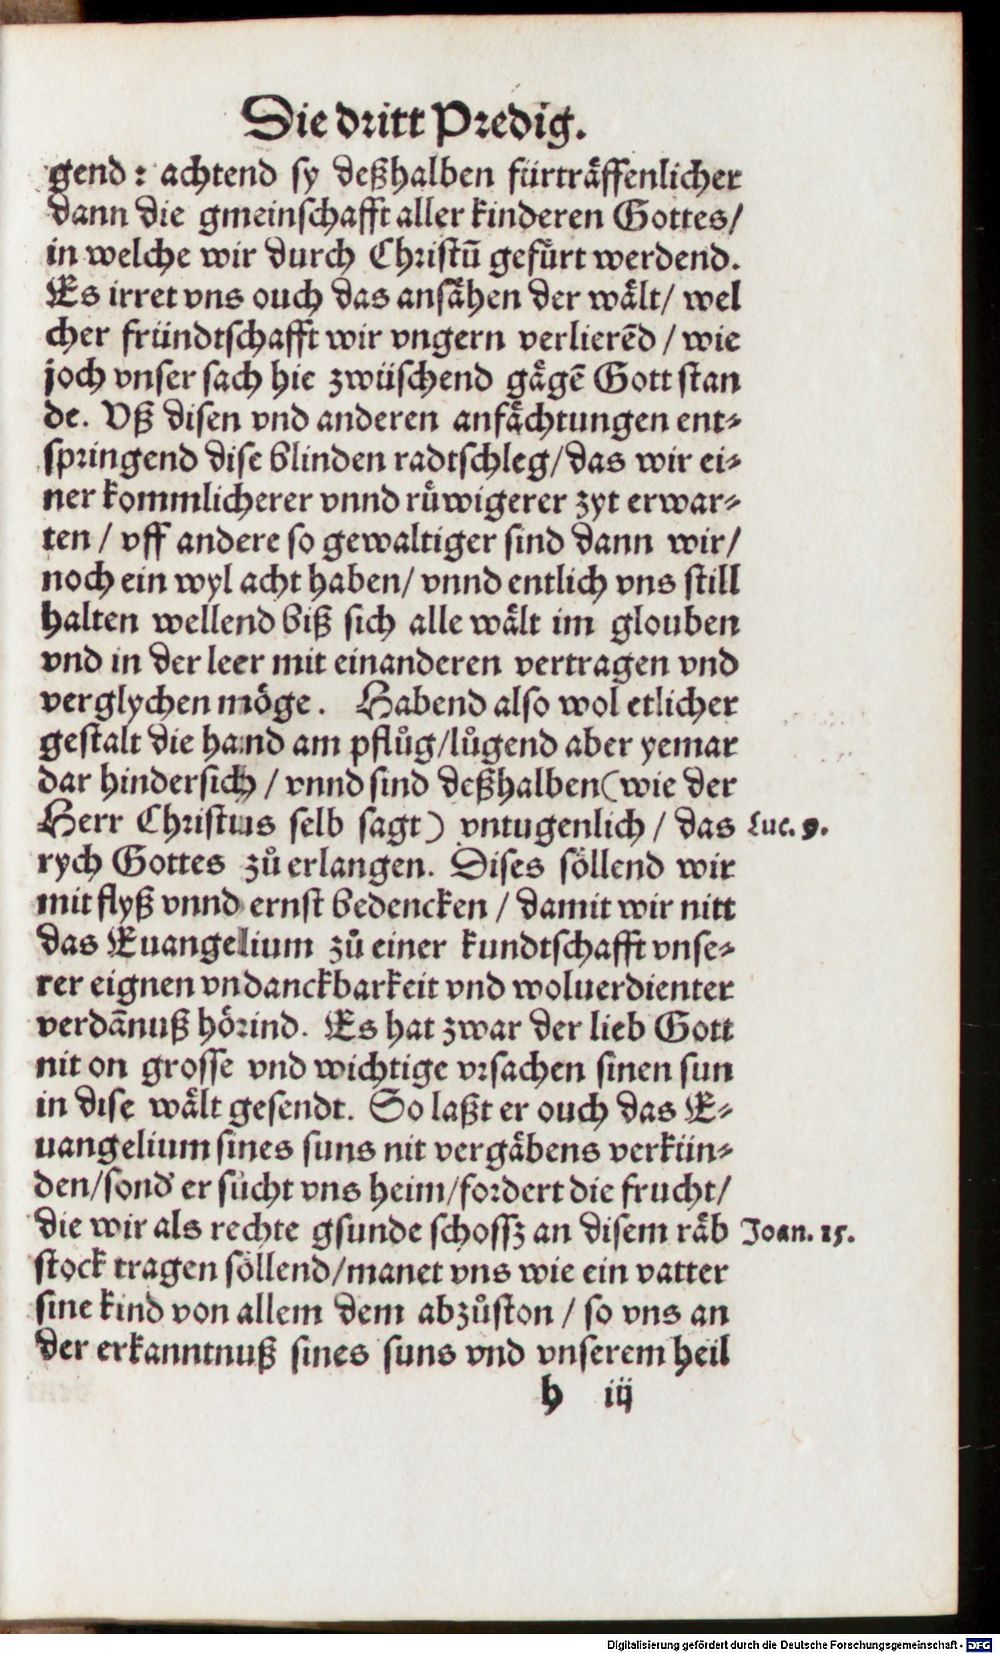 Die dritt Predig.
gend: achtend sy deßhalben fürträffenlicher
dann die gmeinschafft aller kinderen Gottes/
in welche wir durch Christū gefürt werdend.
Es irret vns ouch das ansähen der wält/ wel
cher fründtschafft wir vngern verlierēd / wie
joch vnser sach hie zwüschend gägē Gott stan
de. Vß disen vnd anderen anfächtungen ent-
springend dise blinden radtschleg/das wir ei-
ner kommlicherer vnnd rüwigerer zyt erwar-
ten / vff andere so gewaltiger sind dann wir/
noch ein wyl acht haben/ vnnd entlich vns still
halten wellend biß sich alle wält im glouben
vnd in der leer mit einanderen vertragen vnd
verglychen möge. Habend also wol etlicher
gestalt die hand am pflůg/lůgend aber yemar
dar hindersich / vnnd sind deßhalben (wie der
Herr Christus selb sagt) vntugenlich / das Luc. 9.
rych Gottes zů erlangen. Dises söllend wir
mit flyß vnnd ernst bedencken / damit wir nitt
das Euangelium zů einer kundtschafft vnse-
rer eignen vndanckbarkeit vnd woluerdienter
verdāmnuß hörind. Es hat zwar der lieb Gott
nit on grosse vnd wichtige vrsachen sinen sun
in dise wält gesendt. So laßt er ouch das E-
uangelium sines suns nit vergäbens verkün-
den/sond' er sůcht vns heim/fordert die frucht/
die wir als rechte gsunde schossz an disem räb Joan. 15.
stock tragen söllend/manet vns wie ein vatter
sine kind von allem dem abzůston / so vns an
der erkanntnuß sines suns vnd vnserem heil
h iij
Digitalisierung gefördert durch die Deutsche Forschungsgemeinschaft - DFG